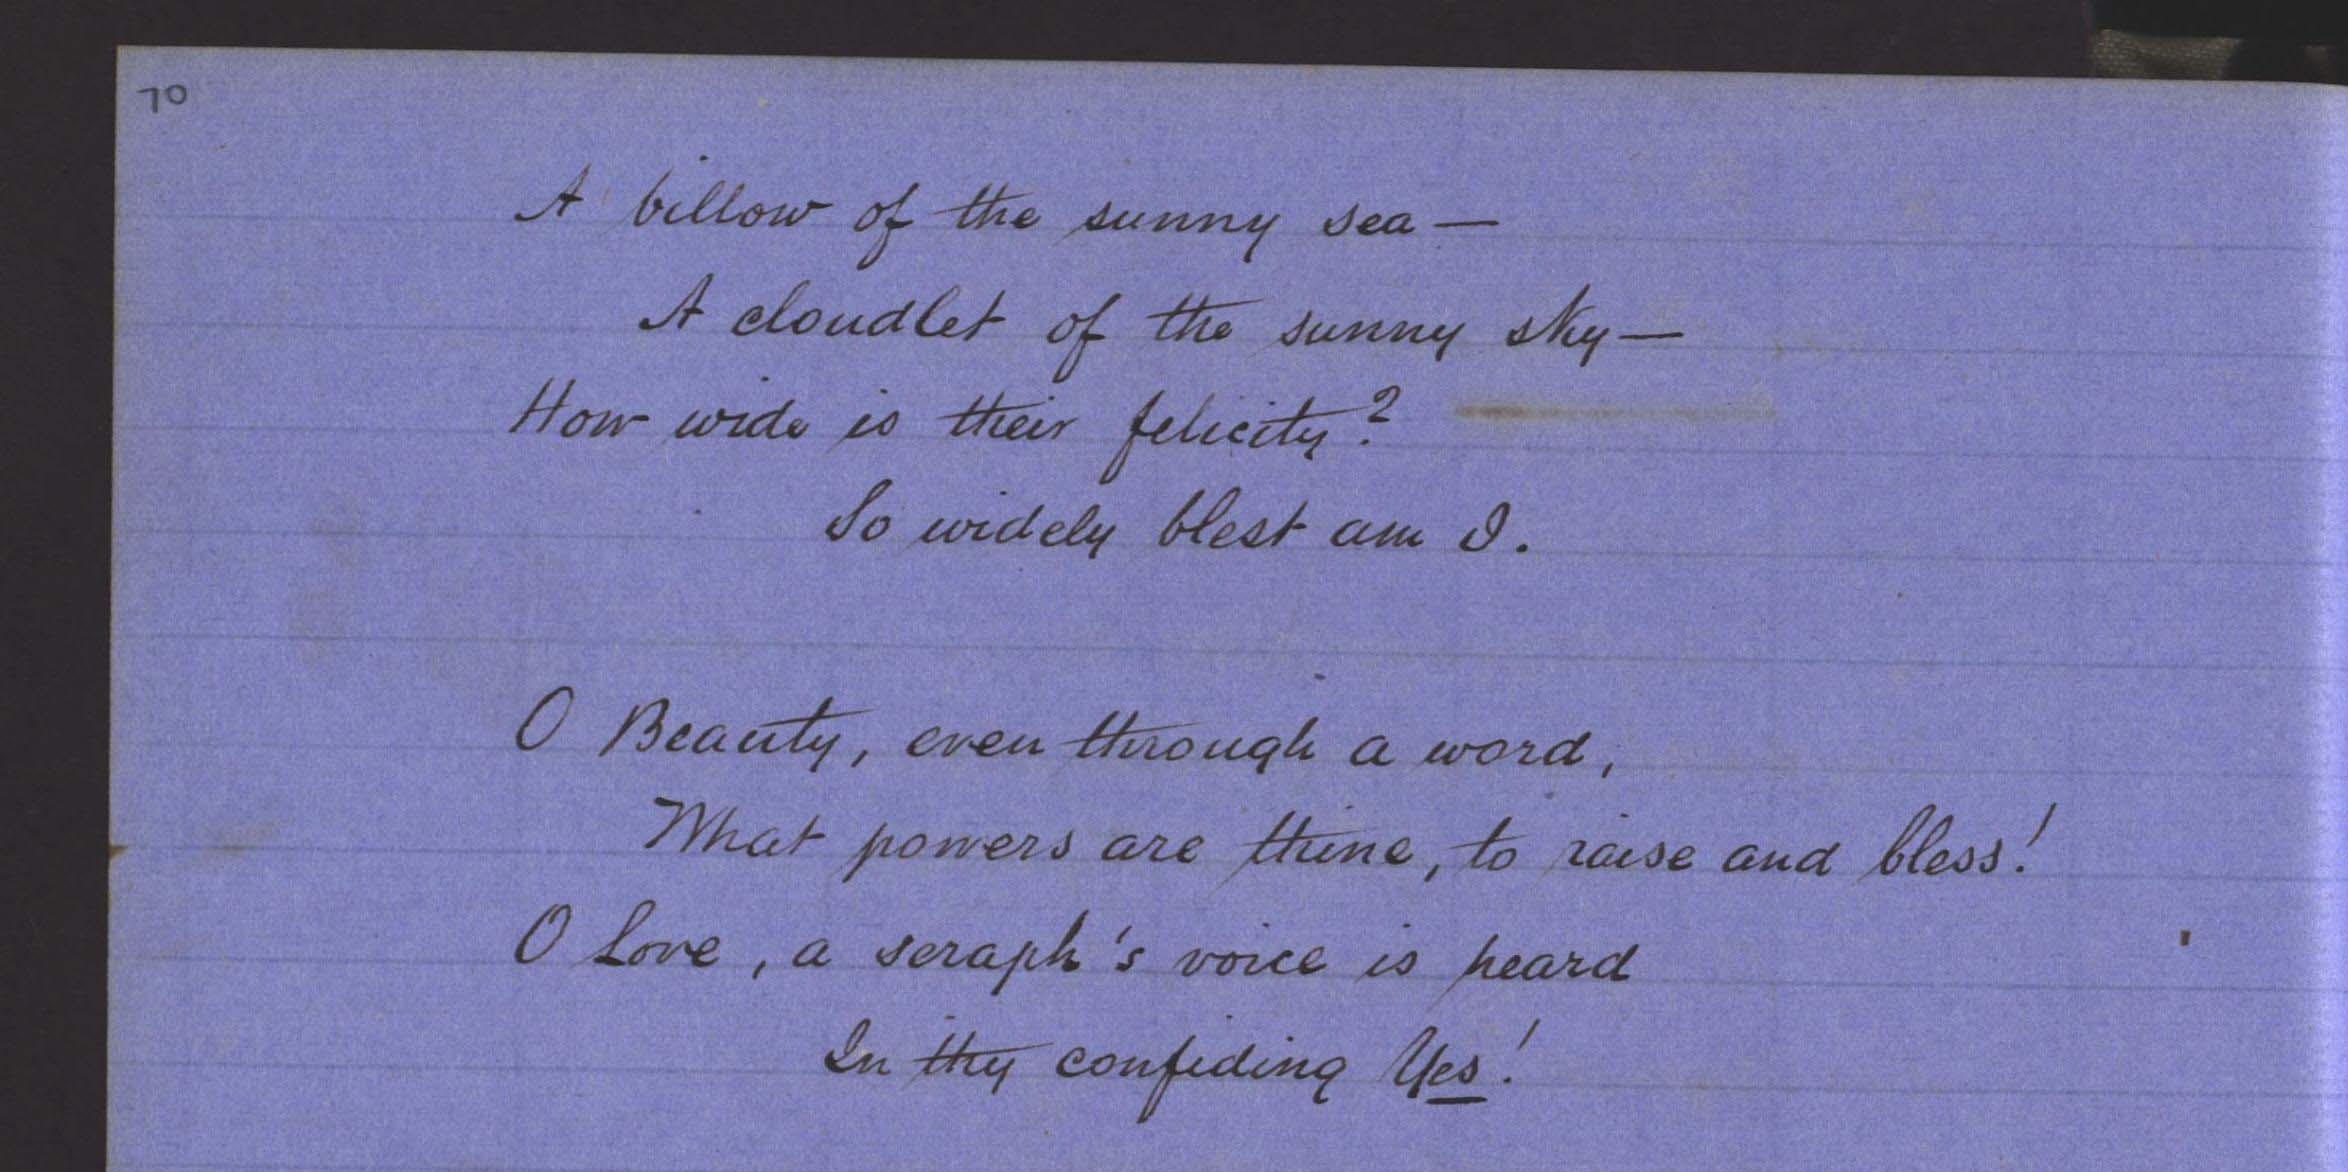 70
A billow of the sunny sea —
A cloudlet of the sunny sky —
How wide is their felicity?
So widely blest am I.
O Beauty, even through a word,
What powers are thine, to raise and bless!
O Love, a seraph's voice is heard
In thy confiding Yes!